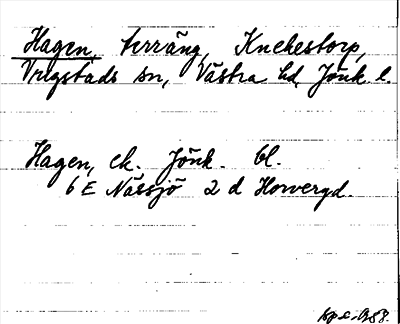 Hagen, terräng, Knekestorp,
Vrigstads sn, Västra hd, Jönk. l.
Hagen, ek. Jönk. bl.
6 E Nässjö 2 d Horvergd.